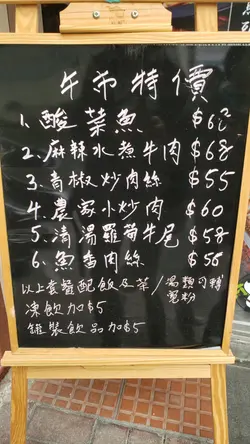 午市特價
1. 酸菜魚 $62
2. 麻辣水煮牛肉 $68
3. 青椒炒肉絲 $55
4. 農家小炒肉 $60
5. 清湯羅蔔牛尾 $58
6. 魚香肉絲 $56
以上套餐配飯及茶/湯類可轉
冤粉
凍飲加$5
罐裝飲品加$5